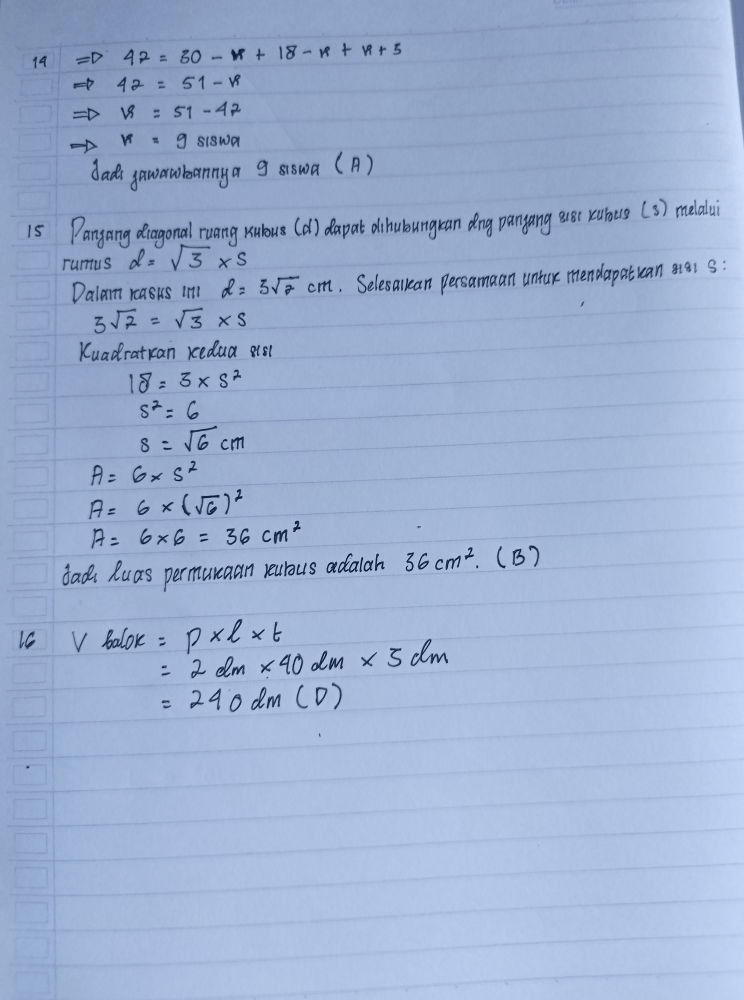 14 ⇒ 42 = 30 - x + 18 - x + x + 3
⇒ 42 = 51 - x
⇒ x = 51 - 42
⇒ x = 9 siswa
Jadi jawawbannya 9 siswa (A)
15 Panjang diagonal ruang kubus (d) dapat dihubungkan dng panjang sisi kubus (s) melalui
rumus d = √3 × s
Dalam kasus ini d = 3√2 cm. Selesaikan persamaan untuk mendapatkan sisi s:
3√2 = √3 × s
Kuadratkan kedua sisi
18 = 3 × s²
s² = 6
s = √6 cm
A = 6 × s²
A = 6 × (√6)²
A = 6 × 6 = 36 cm²
Jadi luas permukaan kubus adalah 36 cm². (B)
16 V balok = p × l × t
= 2 dm × 40 dm × 3 dm
= 240 dm (D)